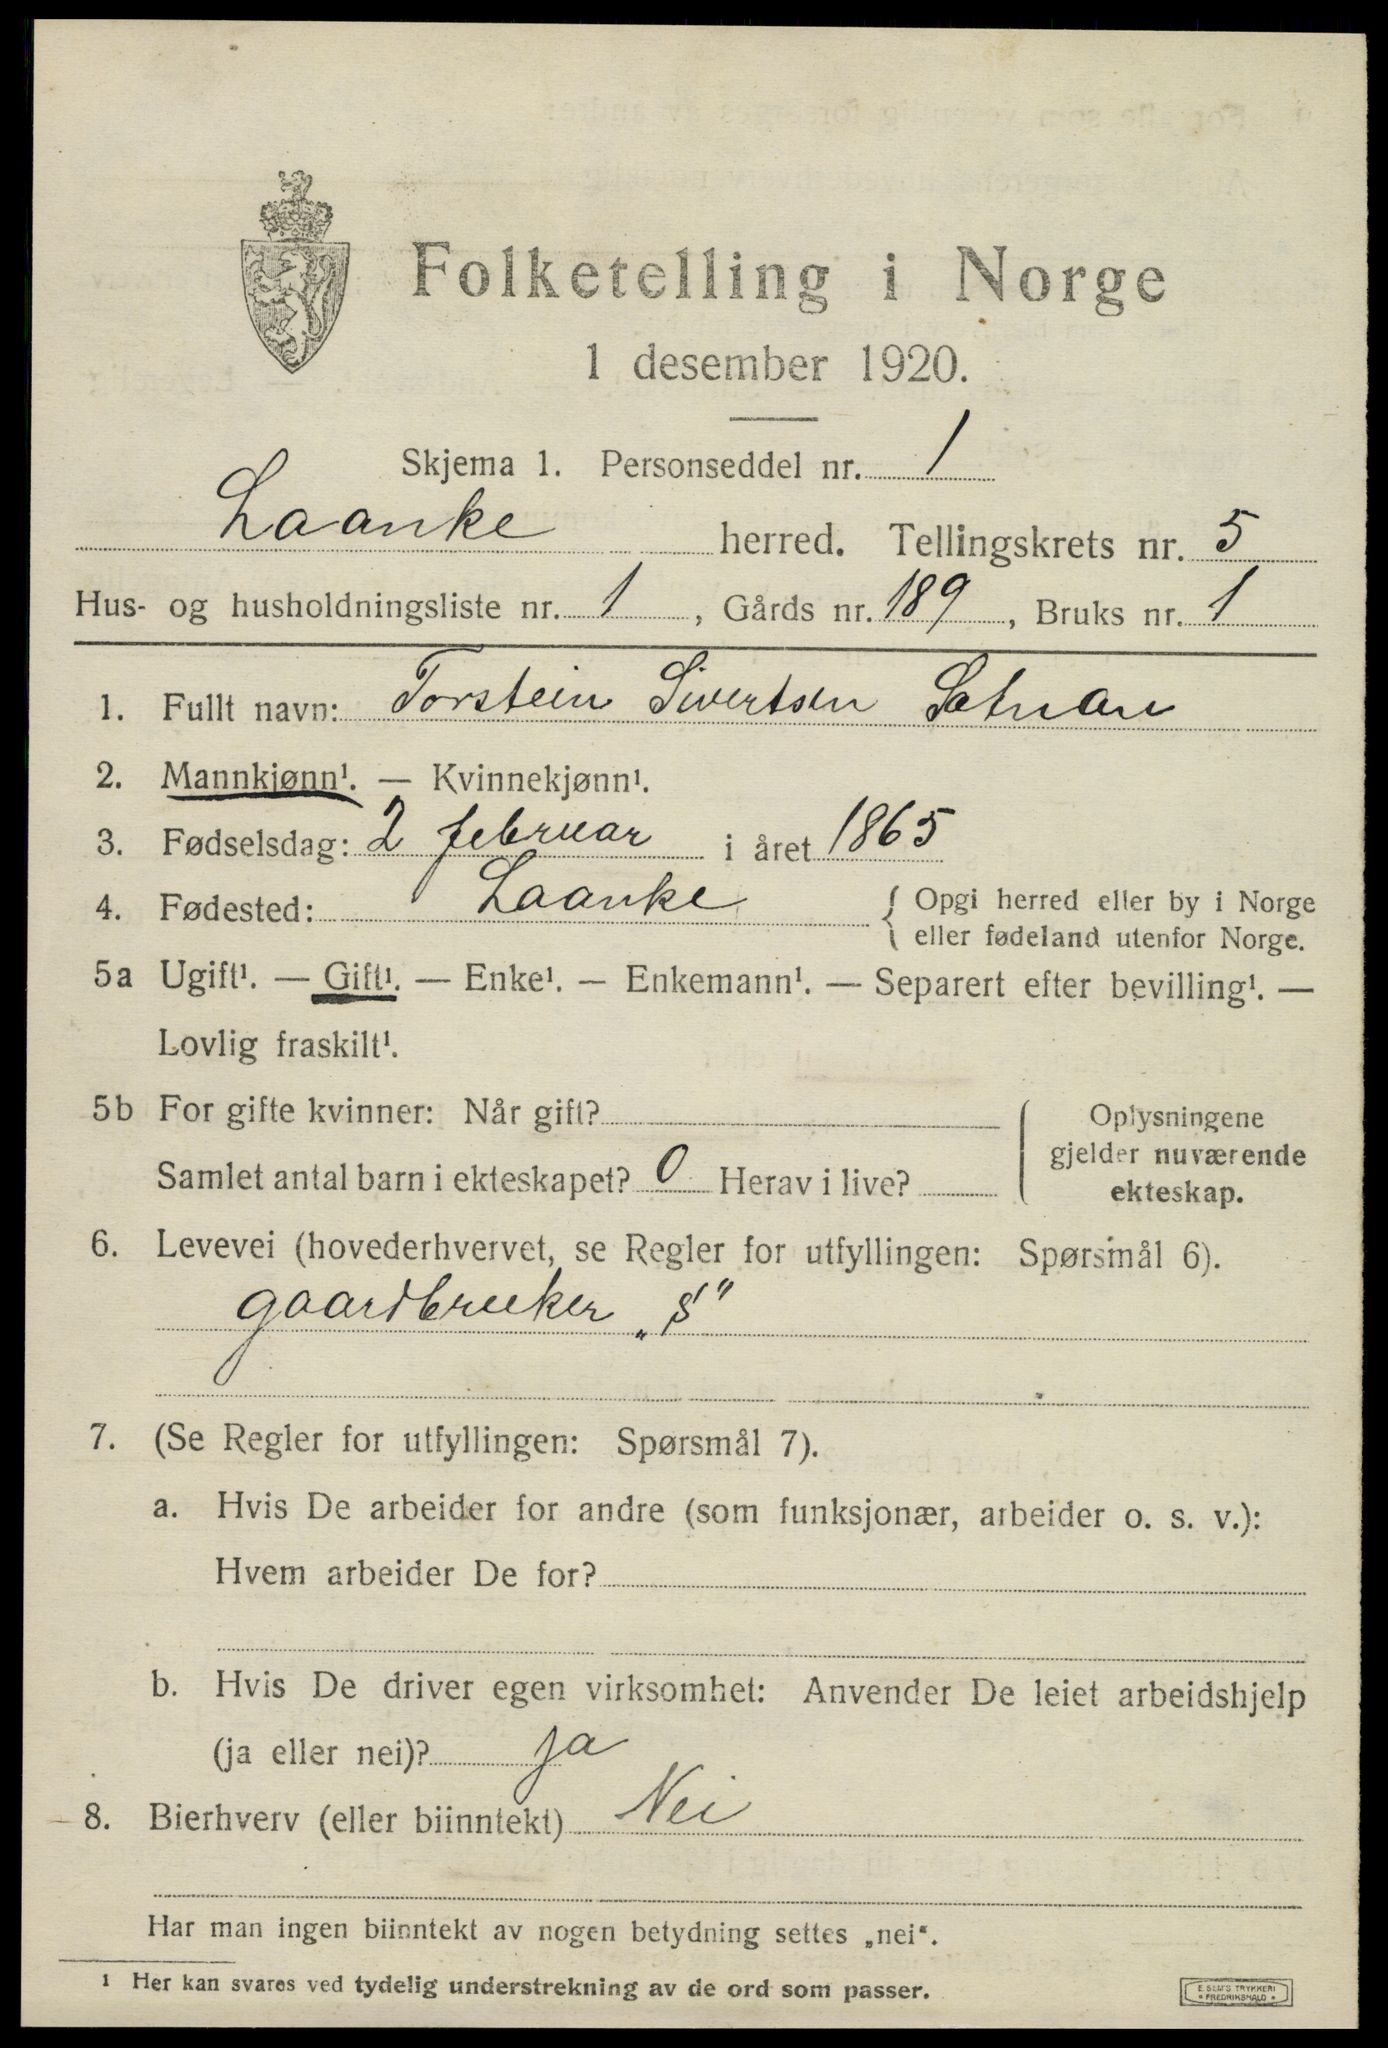 Folketelling i Norge
1 desember 1920.
Skjema 1. Personseddel nr. 1
Laanke herred. Tellingskrets nr. 5
Hus- og husholdningsliste nr. 1, Gårds nr. 189, Bruks nr. 1
1. Fullt navn: Torstein Sivertsen
2. Mannkjønn¹. — Kvinnekjønn¹.
3. Fødselsdag: 2 februar i året 1865
4. Fødested: Laanke { Opgi herred eller by i Norge
eller fødeland utenfor Norge.
5a Ugift¹. — Gift¹. — Enke¹. — Enkemann¹. — Separert efter bevilling¹. —
Lovlig fraskilt¹.
5b For gifte kvinner: Når gift?
Samlet antal barn i ekteskapet? 0 Herav i live?
Oplysningene
gjelder nuværende
ekteskap.
6. Levevei (hovederhvervet, se Regler for utfyllingen: Spørsmål 6).
gaardbruker „S"
7. (Se Regler for utfyllingen: Spørsmål 7).
a. Hvis De arbeider for andre (som funksjonær, arbeider o. s. v.):
Hvem arbeider De for?
b. Hvis De driver egen virksomhet: Anvender De leiet arbeidshjelp
(ja eller nei)? ja
8. Bierhverv (eller biinntekt) Nei
Har man ingen biinntekt av nogen betydning settes „nei“.
1 Her kan svares ved tydelig understrekning av de ord som passer.
E SEM'S TRYKKERI
FREDRIKSHALD